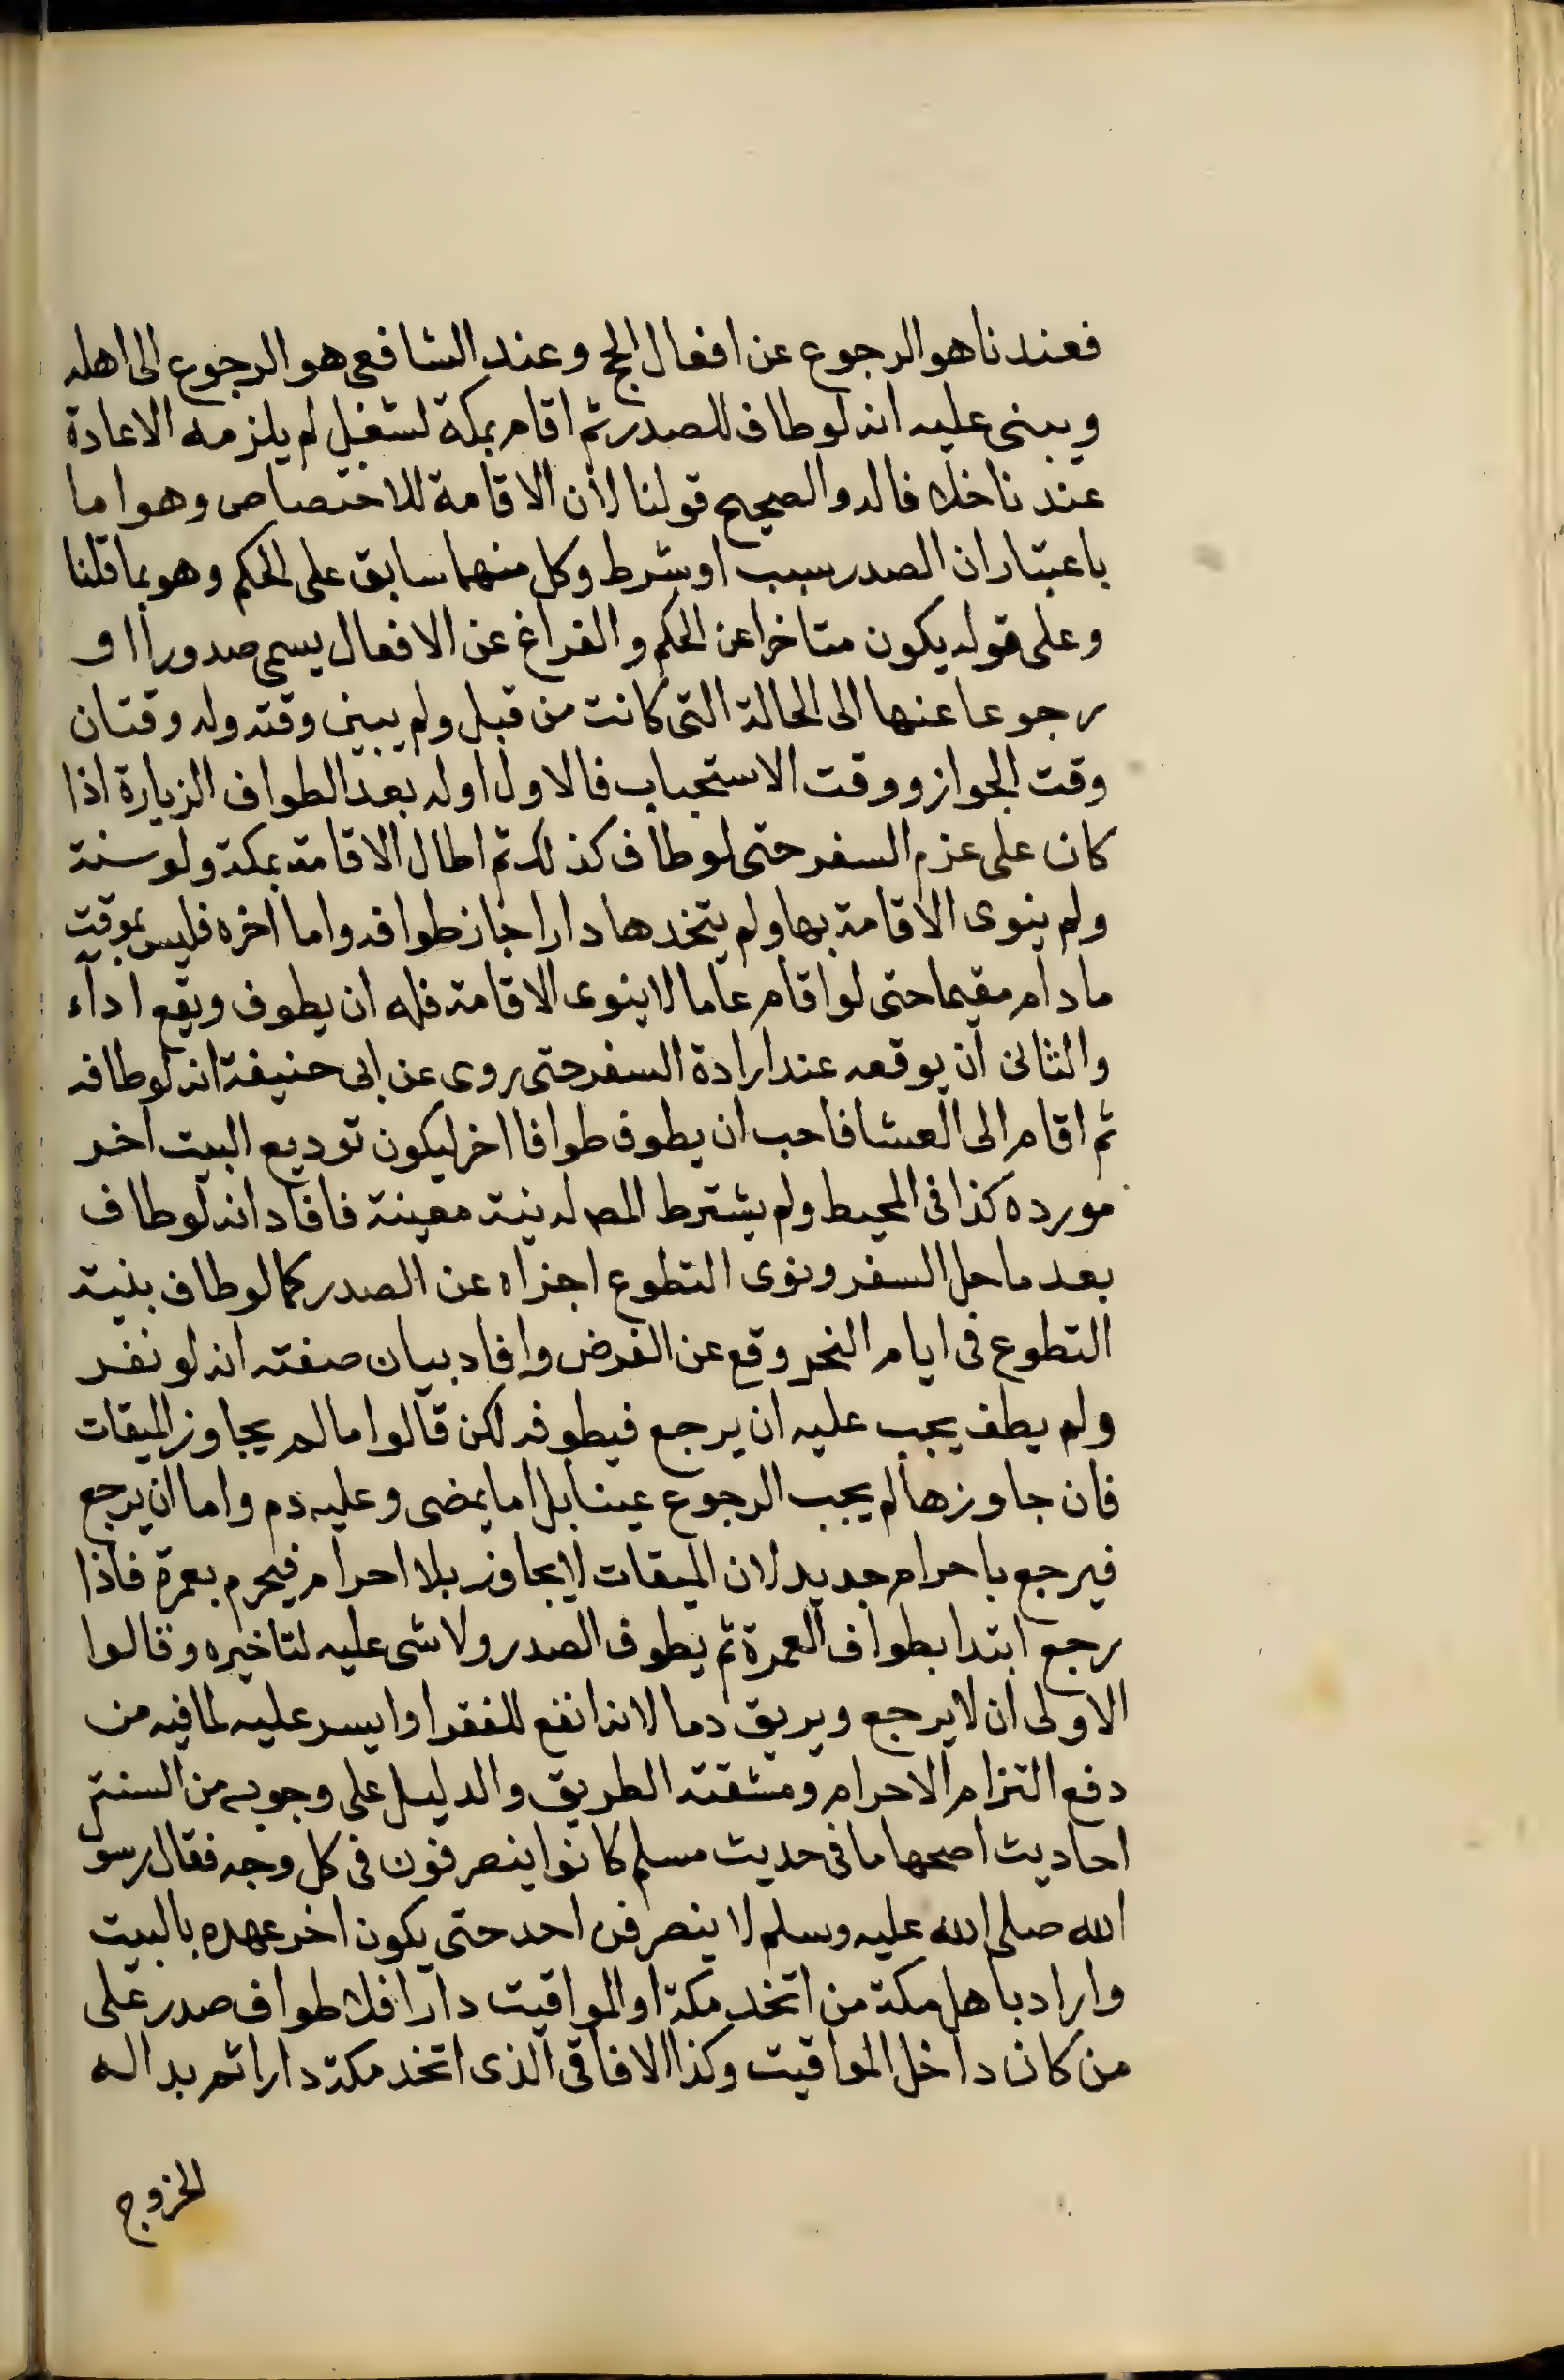 فعندنا هو الرجوع عن افعال الحج وعند الشافعى هو الرجوع الى اهله
ويبنى عليه انه لو طاف للصدر ثم اقام بمكة لشغل لم يلزمه الاعادة
عندنا خلافا له والصحيح قولنا لان الاقامة للاختصاص وهو اما
باعتبار ان الصدر سبب او شرط وكل منهما سابق على الحكم وهو بما قلنا
وعلى قوله يكون متاخرا عن الحكم والفراغ عن الافعال يسمى صدورا او
رجوعا عنها الى الحالة التى كانت من قبل ولم يبين وقته وله وقتان
وقت الجواز ووقت الاستحباب فالاول اوله بعد الطواف الزيارة اذا
كان على عزم السفر حتى لو طاف كذلك ثم اطال الاقامة بمكة ولو سنة
ولم ينوى الاقامة بها ولم يتخدها دارا جاز طوافه واما اخره فليس بموقت
ما دام مقيما حتى لو اقام عاما لا ينوى الاقامة فله ان يطوف ويقع اداء
والثانى ان يوقعه عند ارادة السفر حتى روى عن ابى حنيفة انه لو طافه
ثم اقام الى العشا فاحب ان يطوف طوافا اخر ليكون توديع البيت اخر
مورده كذا فى المحيط ولم يشترط المص له نية معينة فافاد انه لو طاف
بعد ما حل السفر ونوى التطوع اجزاه عن الصدر كما لو طاف بنية
التطوع فى ايام النحر وقع عن الفرض وافاد بيان صفته انه لو نفر
ولم يطف يجب عليه ان يرجع فيطوفه لكن قالوا ما لم يجاوز الميقات
فان جاوزها لم يجب الرجوع عينا بل اما يمضى وعليه دم واما ان يرجع
فيرجع باحرام جديد لان الميقات لا يجاوز بلا احرام فيحرم بعمرة فاذا
رجع ابتدا بطواف العمرة ثم يطوف الصدر ولا شى عليه لتاخيره وقالوا
الاولى ان لا يرجع ويريق دما لانه انفع للفقرا وايسر عليه لما فيه من
دفع التزام الاحرام ومشقته الطريق والدليل على وجوبه من السنة
احاديث اصحها ما فى حديث مسلم كانوا ينصرفون فى كل وجه فقال رسو
الله صلى الله عليه وسلم لا ينصرفن احد حتى يكون اخر عهده بالبيت
واراد باهل مكة من اتخد مكة او المواقيت دارا فلا طواف صدر على
من كان داخل المواقيت وكذا الافاقى الذى اتخد مكة دارا ثم بدا له
الخروج